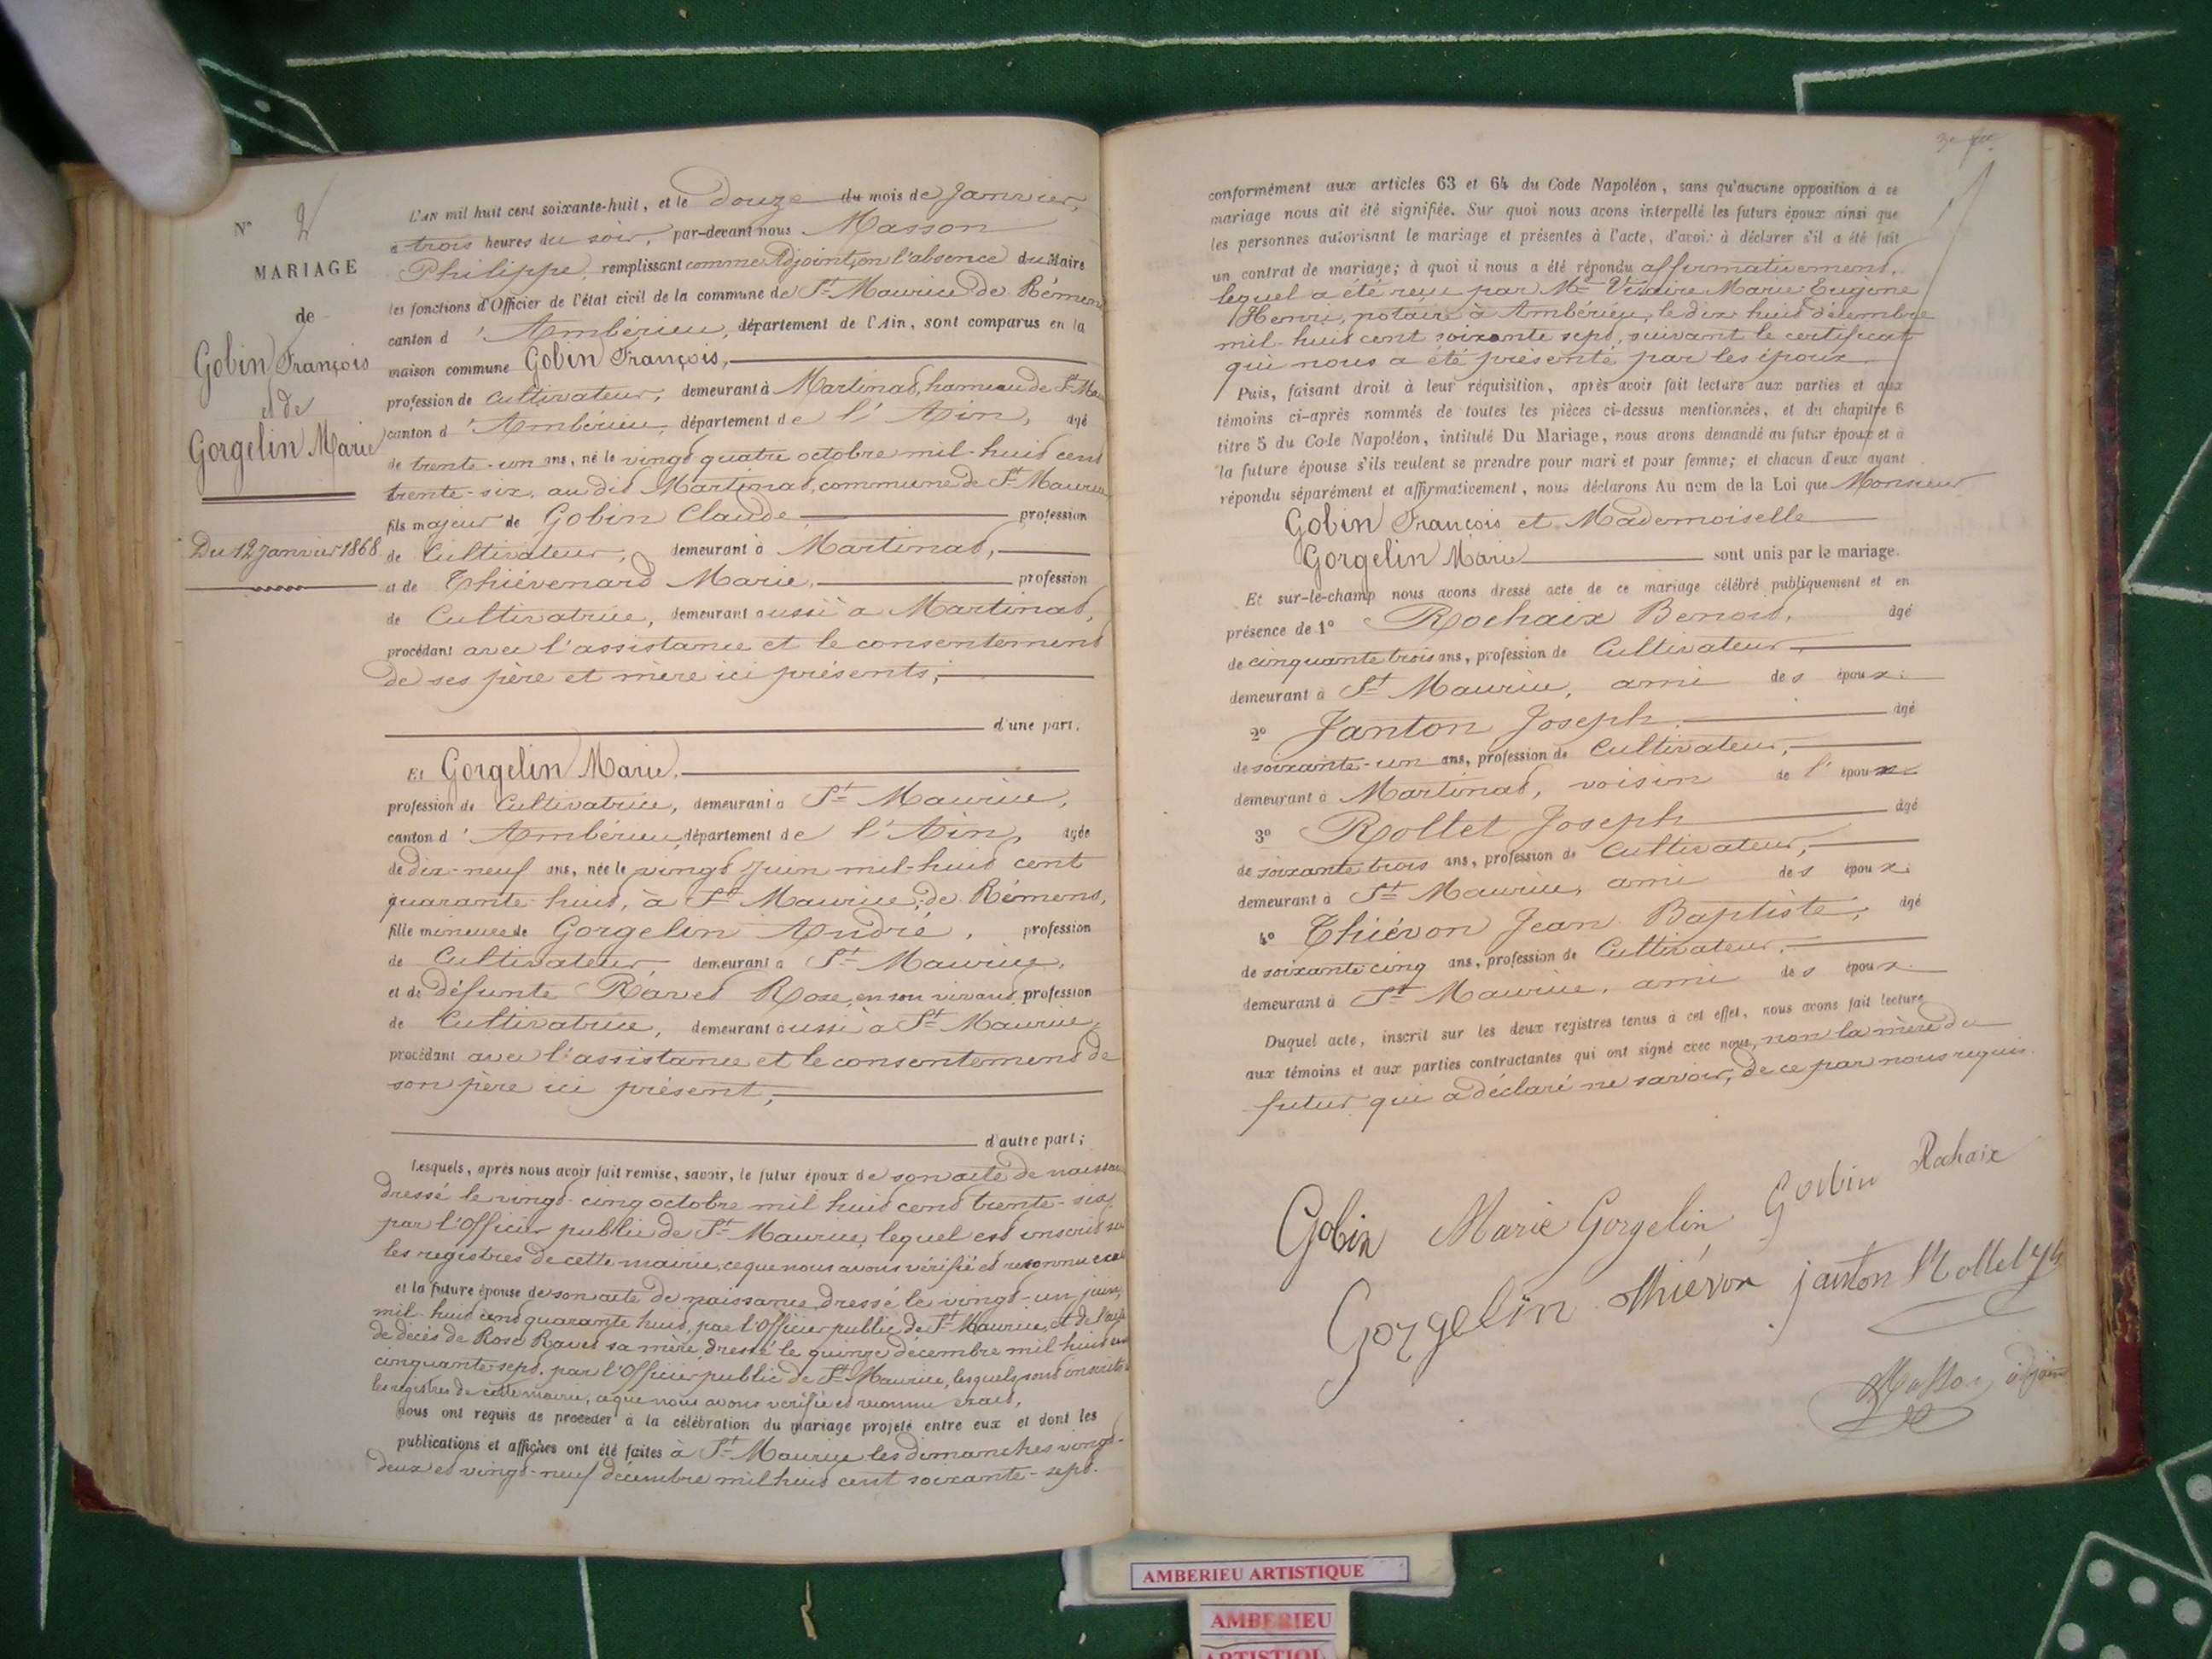 N° 2
MARIAGE
de
Gobin François
et de
Gorgelin Marie
Du 12 Janvier 1868
L'AN mil huit cent soixante-huit, et le douze du mois de Janvier,
à trois heures du soir, par-devant nous Masson
Philippe, remplissant comme Adjoint, en l'absence du Maire
les fonctions d'Officier de l'état civil de la commune de St Maurice de Rémens
canton d'Ambérieu, département de l'Ain, sont comparus en la
maison commune Gobin François,
profession de Cultivateur, demeurant à Martinas, hameau de St Mau
canton d'Ambérieu, département de l'Ain, âgé
de trente-un ans, né le vingt quatre octobre mil-huit cent
trente-six, au dit Martinas, commune de St Maurice
fils majeur de Gobin Claude, profession
de Cultivateur, demeurant à Martinas,
et de Thiévenard Marie, profession
de Cultivatrice, demeurant aussi à Martinas,
procédant avec l'assistance et le consentement
de ses père et mère ici présents;
d'une part,
Et Gorgelin Marie,
profession de Cultivatrice, demeurant à St Maurice,
canton d'Ambérieu, département de l'Ain, âgée
de dix-neuf ans, née le vingt Juin mil-huit cent
quarante-huit, à St Maurice, de Rémens,
fille mineure de Gorgelin André, profession
de Cultivateur, demeurant à St Maurice,
et de défunte Ravet Rose, en son vivant, profession
de Cultivatrice, demeurant aussi à St Maurice,
procédant avec l'assistance et le consentement de
son père ici présent,
d'autre part;
Lesquels, après nous avoir fait remise, savoir, le futur époux de son acte de naissan
dressé le vingt-cinq octobre mil huit cent trente-six,
par l'Officier public de St Maurice, lequel est inscrit sur
les registres de cette mairie, ce que nous avons vérifié et reconnu exact
et la future épouse de son acte de naissance dressé le vingt-un juin,
mil-huit cent quarante huit, par l'Officier public de St Maurice, et de l'acte
de décès de Rose Ravet sa mère, dressé le quinze décembre mil huit cent
cinquante-sept, par l'Officier public de St Maurice, lesquels sont inscrits
les registres de cette mairie, ce que nous avons vérifié et reconnu exact,
nous ont requis de procéder à la célébration du mariage projeté entre eux et dont les
publications et affiches ont été faites à St Maurice les dimanches vingt-
deux et vingt-neuf décembre mil huit cent soixante-sept.
conformément aux articles 63 et 64 du Code Napoléon, sans qu'aucune opposition à ce
mariage nous ait été signifiée. Sur quoi nous avons interpellé les futurs époux ainsi que
les personnes autorisant le mariage et présentes à l'acte, d'avoir à déclarer s'il a été fait
un contrat de mariage; à quoi il nous a été répondu affirmativement,
lequel a été reçu par Me Marie Eugène
Henri, notaire à Ambérieu, le dix huit décembre
mil-huit cent soixante sept, suivant le certificat
qui nous a été présenté par les époux.
Puis, faisant droit à leur réquisition, après avoir fait lecture aux parties et aux
témoins ci-après nommés de toutes les pièces ci-dessus mentionnées, et du chapitre 6
titre 5 du Code Napoléon, intitulé Du Mariage, nous avons demandé au futur époux et à
la future épouse s'ils veulent se prendre pour mari et pour femme; et chacun d'eux ayant
répondu séparément et affirmativement, nous déclarons Au nom de la Loi que Monsieur
Gobin François et Mademoiselle
Gorgelin Marie sont unis par le mariage.
Et sur-le-champ nous avons dressé acte de ce mariage célébré publiquement et en
présence de 1° Rochaix Benoit, âgé
de cinquante trois ans, profession de Cultivateur,
demeurant à St Maurice, ami des époux.
2° Janton Joseph, âgé
de soixante-un ans, profession de Cultivateur,
demeurant à Martinas, voisin de l'époux
3° Rollet Joseph âgé
de soixante trois ans, profession de Cultivateur,
demeurant à St Maurice, ami des époux.
4° Thiévon Jean Baptiste, âgé
de soixante cinq ans, profession de Cultivateur,
demeurant à St Maurice, ami des époux.
Duquel acte, inscrit sur les deux registres tenus à cet effet, nous avons fait lecture
aux témoins et aux parties contractantes qui ont signé avec nous, non la mère du
futur qui a déclaré ne savoir, de ce par nous requis.
Gobin Marie Gorgelin Gobin Rochaix
Gorgelin Thiévon janton Rollet
Masson adjoint
AMBERIEU ARTISTIQUE
AMBERIEU
ARTISTIQU